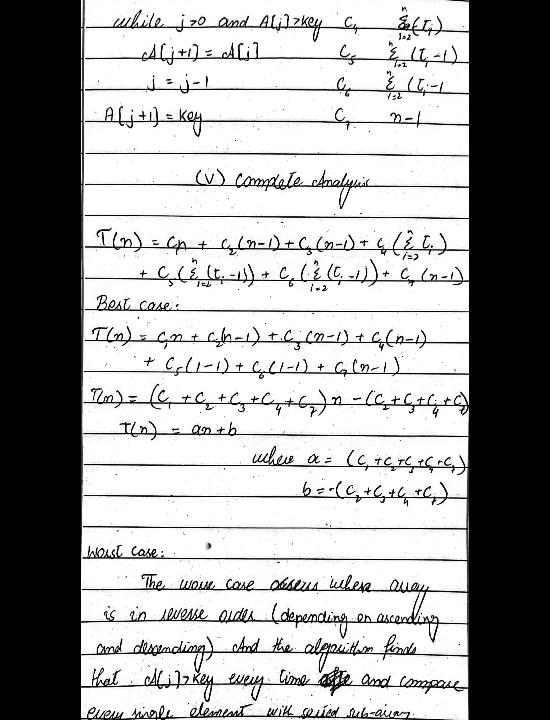 while j>0 and A[j]>key C₄ Σⁿᵢ₌₂(tᵢ)
A[j+1] = A[j] C₅ Σⁿᵢ₌₂ (tᵢ-1)
j = j-1 C₆ Σⁿᵢ₌₂ (tᵢ-1
A[j+1] = key C₇ n-1
(V) Complete Analysis
T(n) = C₁n + C₂(n-1) + C₃(n-1) + C₄ (Σⁿᵢ₌₂ tᵢ)
+ C₅(Σⁿᵢ₌₂ (tᵢ-1)) + C₆(Σⁿᵢ₌₂ (tᵢ-1)) + C₇(n-1)
Best case:
T(n) = C₁n + C₂(n-1) + C₃(n-1) + C₄(n-1)
+ C₅(1-1) + C₆(1-1) + C₇(n-1)
T(n) = (C₁ + C₂ + C₃ + C₄ + C₇) n - (C₂+C₃+C₄+C₇)
T(n) = an+b
where a = (C₁+C₂+C₃+C₄+C₇)
b = -(C₂+C₃+C₄+C₇)
Worst case:
The worse case when array
is in reverse order (depending on ascending
and descending) And the algorithm finds
that A[j]>key every time and compare
every single element with sorted sub-array.